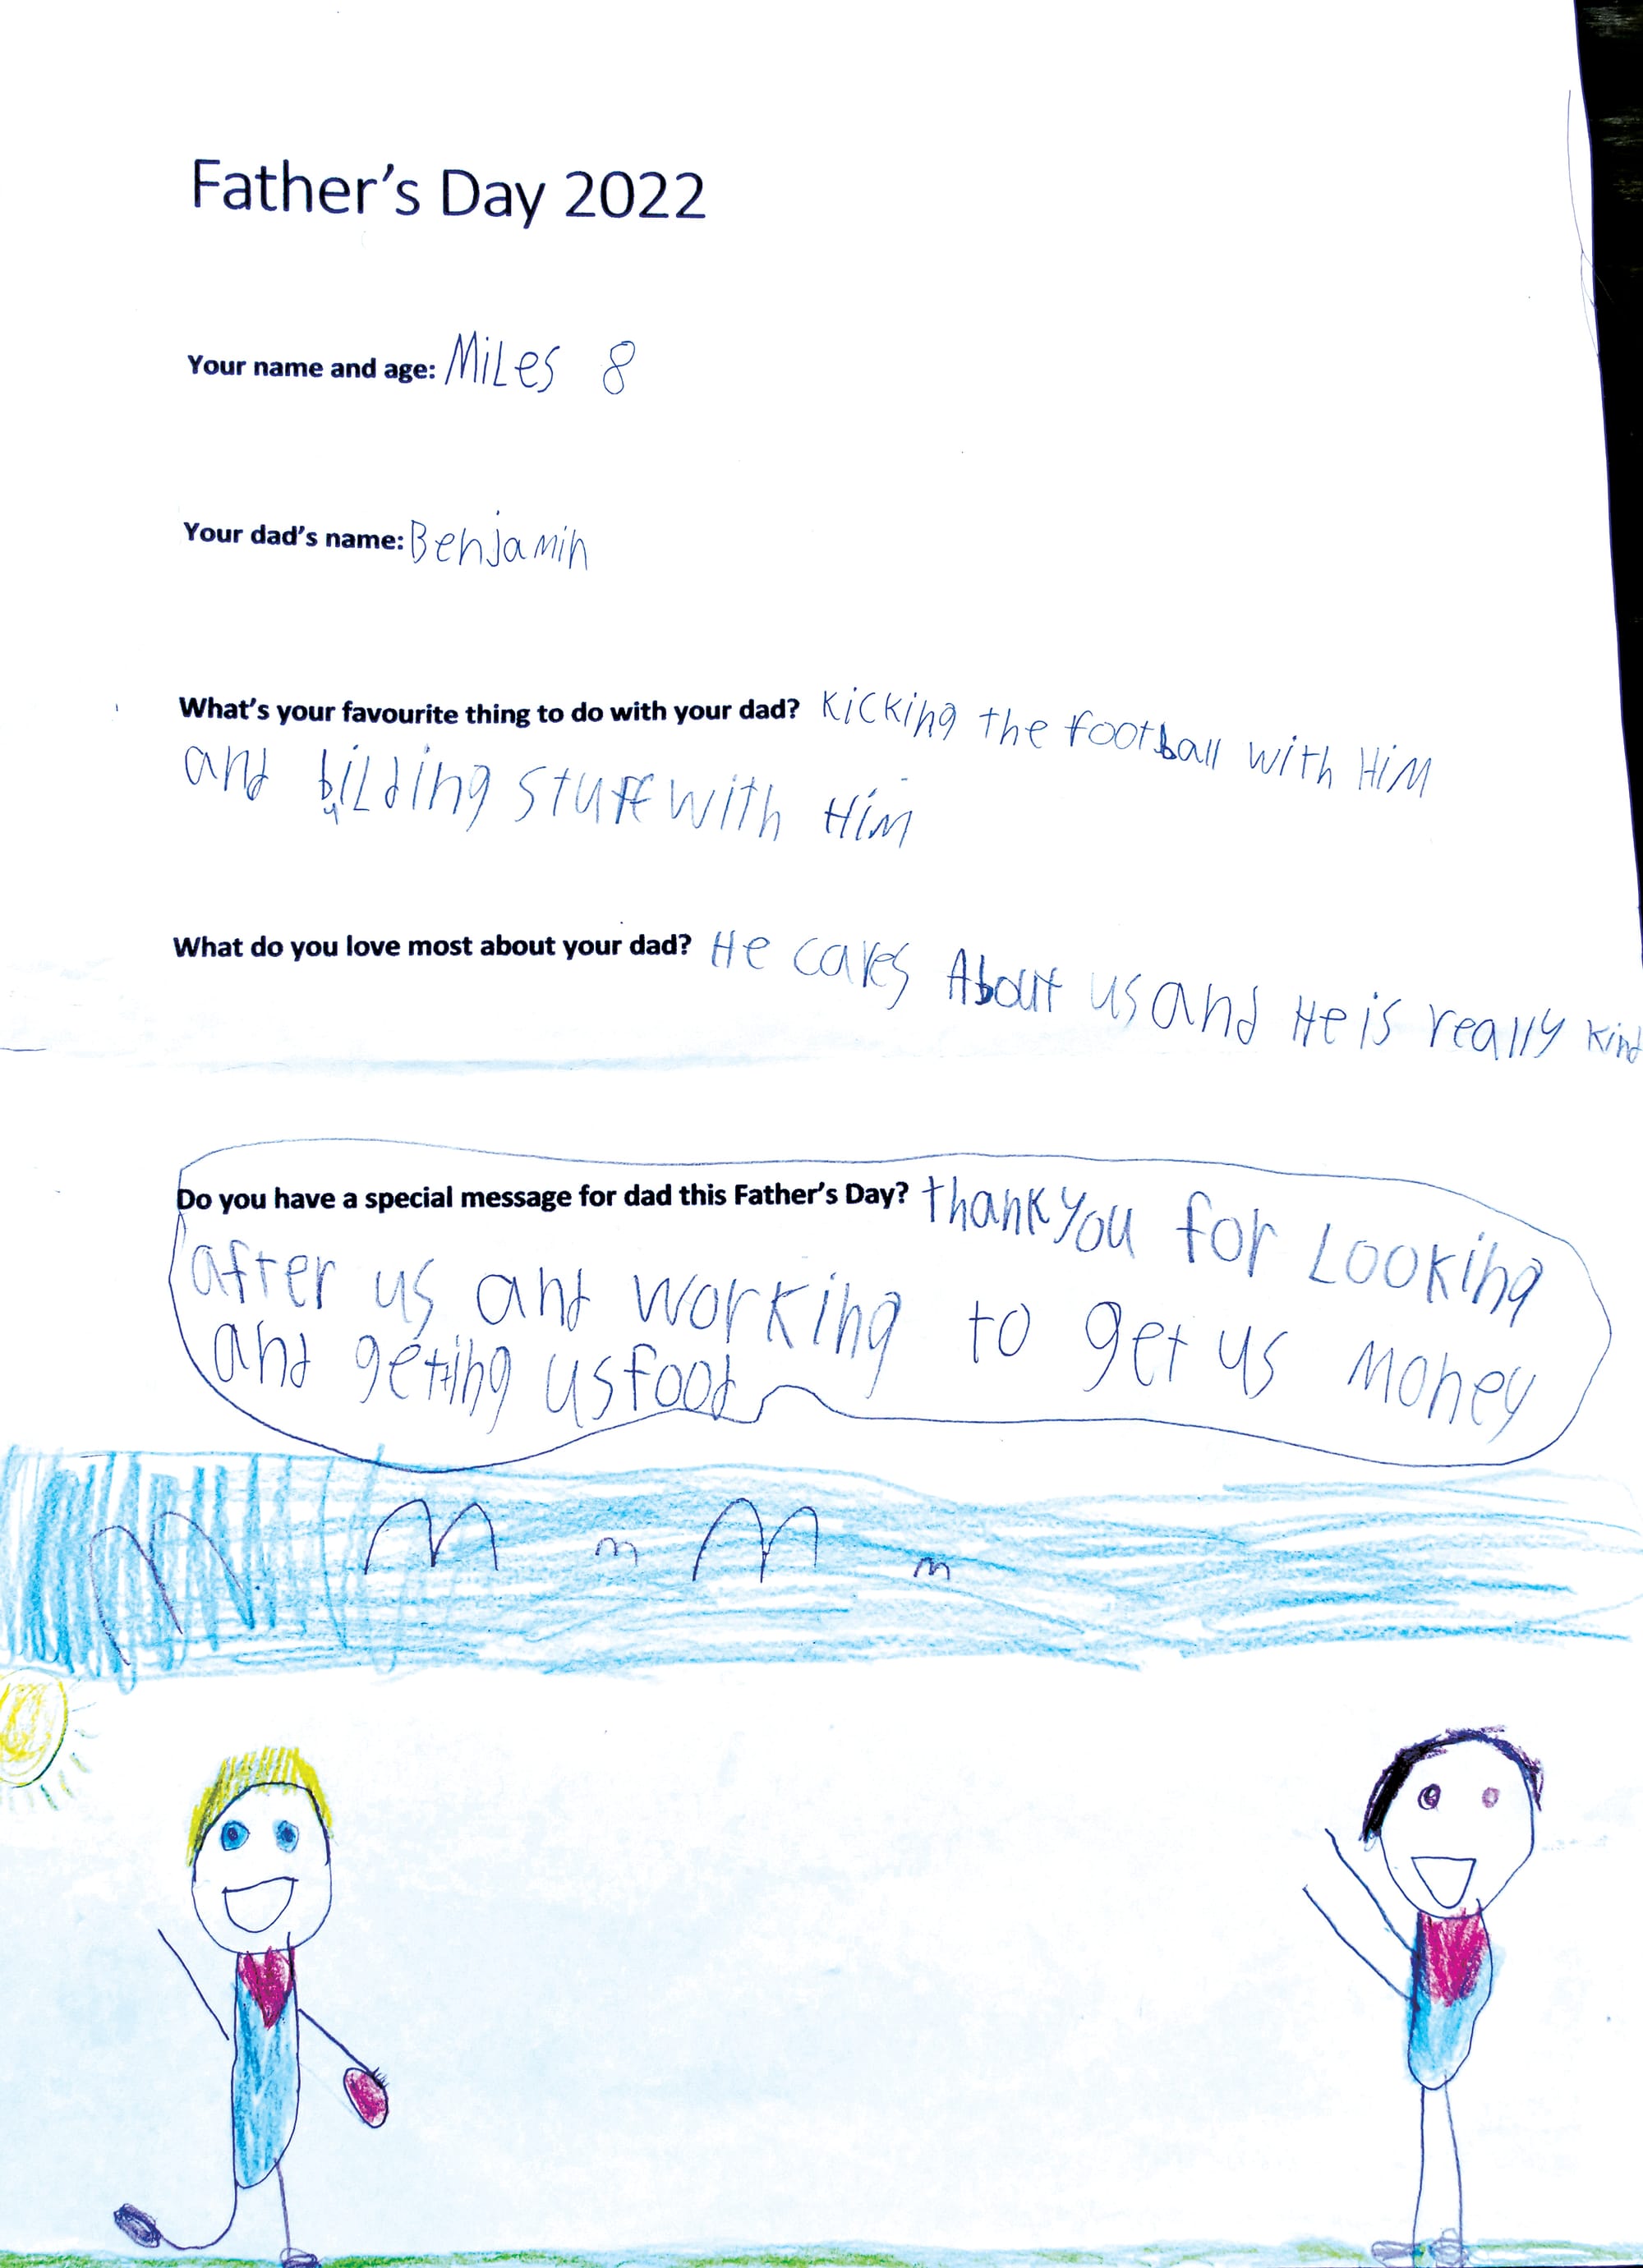 Father's Day 2022
Your name and age: Miles 8
Your dad's name: Benjamin
What's your favourite thing to do with your dad? Kicking the football with Him
and bilding stuff with Him
u
What do you love most about your dad? He cares About us and He is really kind
Do you have a special message for dad this Father's Day? thank you for Looking
after us and working to get us money
and getting us food